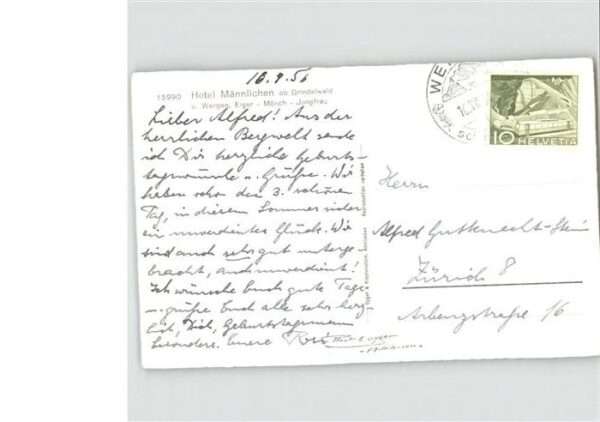 16.9.56
15990 Hotel Männlichen ob Grindelwald
u. Wengen, Eiger - Mönch - Jungfrau
Lieber Alfred! Aus der
herrlichen Bergwelt sende
ich Dir herzliche Geburts-
tagswünsche u. Grüsse. Wir
haben schon den 3. schönen
Tag, in diesem Sommer
ein unverdientes Glück. Wir
sind auch sehr gut unterge
bracht, auch unverdient!
Ich wünsche Euch gute Tage
grüsse Euch alle sehr herz-
lich, Dich, Geburtstagsmann
besonders. Euere
WE
10
HELVETIA
Herrn
Alfred Gutknecht-Stein
Zürich 8
Arbenzstraße 16